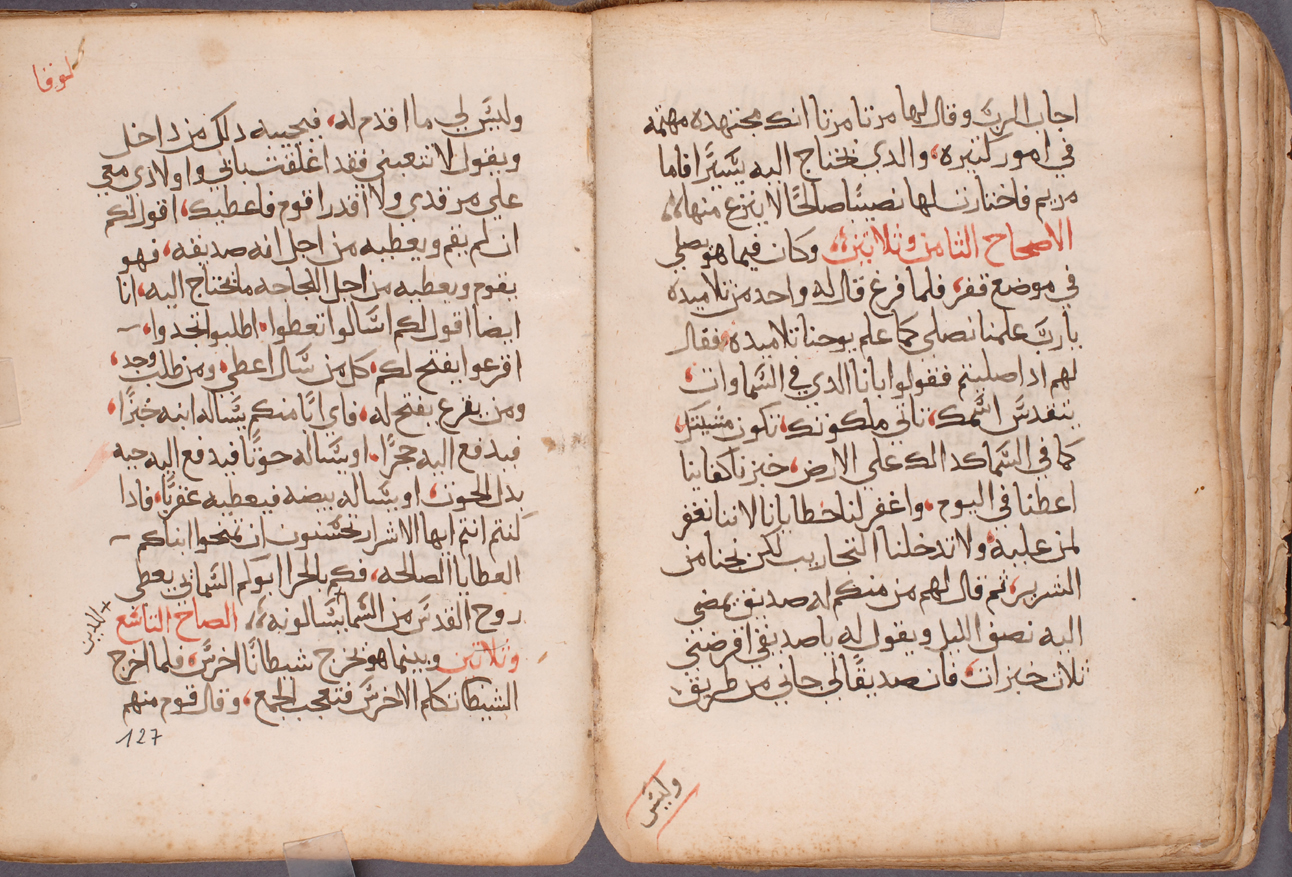 اجاب الرب وقال لها مرتا مرتا انك مجتهده مهتمه
في امور كتيره، والدي تحتاج اليه يسيرًا فاما
مريم فاختارت لها نصيبًا صالحًا لا ينزع منها،،
الاصحاح التامن وتلاتين،، وكان فيما هو يصلي
في موضع قفر، فلما فرغ قال له واحد من تلاميده
يا رب علمنا نصلي كما علم يوحنا تلاميده، فقال
لهم ادا صليتم فقولوا ابانا الدي في السماوات،
يتقدس اسمك، تاتي ملكوتك، تكون مشيتك،
كما في السما كدالك على الارض، خبزنا كفاتنا
اعطنا في اليوم، واغفر لنا خطايانا لاننا نغفر
لمن علينا، ولا تدخلنا التجاريب لكن نجنا من
الشرير، تم قال لهم من منكم له صديق يمضي
اليه نصف الليل ويقول له يا صديقي اقرضني
تلات خبزات، فان صديقًا لي جاني من طريق
وليس
لوقا
وليس لي ما اقدم له، فيجيبه دلك من داخل
ويقول لا تتعبني فقد اغلقت بابي واولادي معي
علي مرقدي ولا اقدر اقوم فاعطيك، اقول لكم
ان لم يقم ويعطيه من اجل انه صديقه، فهو
يقوم ويعطيه من اجل اللجاجه ما يحتاج اليه، انا
ايضا اقول لكم اسالوا تعطوا، اطلبوا تجدوا،
اقرعوا يفتح لكم، كل من سال اعطي، ومن طلب وجد،
ومن يقرع يفتح له، فاي ابًا منكم يساله ابنه خبزًا،
فيدفع اليه حجرًا، او يساله حوتًا فيدفع اليه حيه
بدل الحوت، او يساله بيضه فيعطيه عقربًا، فادا
كنتم انتم ايها الاشرار تحسنون ان تمنحوا ابناكم
العطايا الصالحه، فكم بالحرا ابوكم السماني يعطي
روح القدس من السما يسالونه،، الصاح التاسع
للدين
وتلاتين وبينما هو يخرج شيطانًا اخرس، فلما اخرج
الشيطان تكلم الاخرس فتعجب الجمع، وقال قوم منهم
127